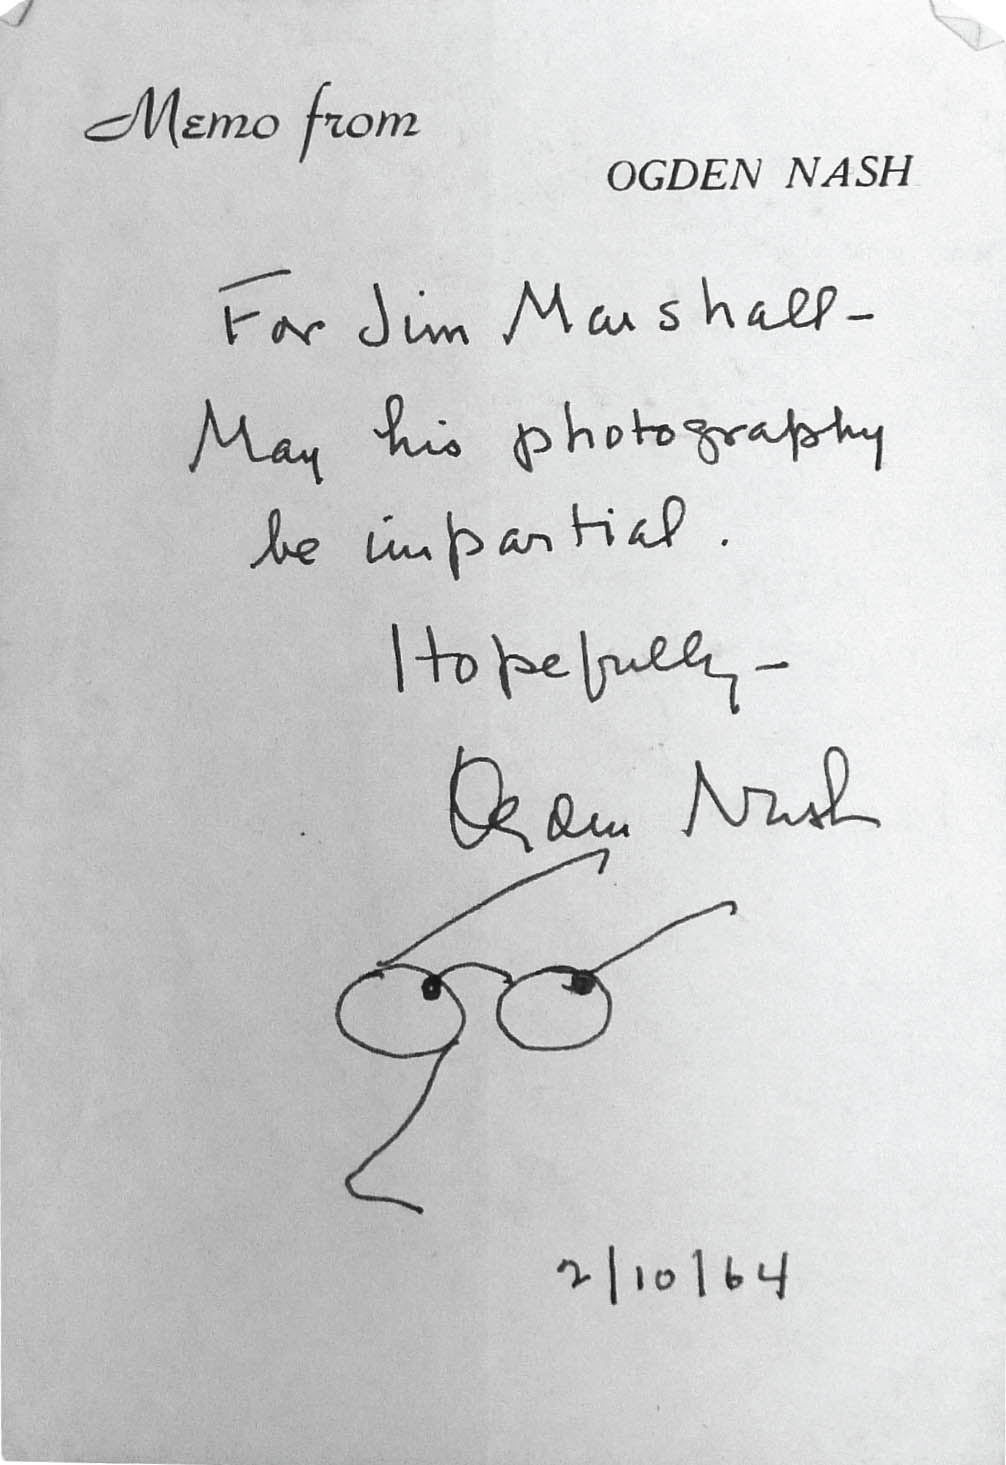 Memo from
OGDEN NASH
For Jim Marshall-
May his photography
be impartial.
Hopefully-
Ogden Nash
2/10/64